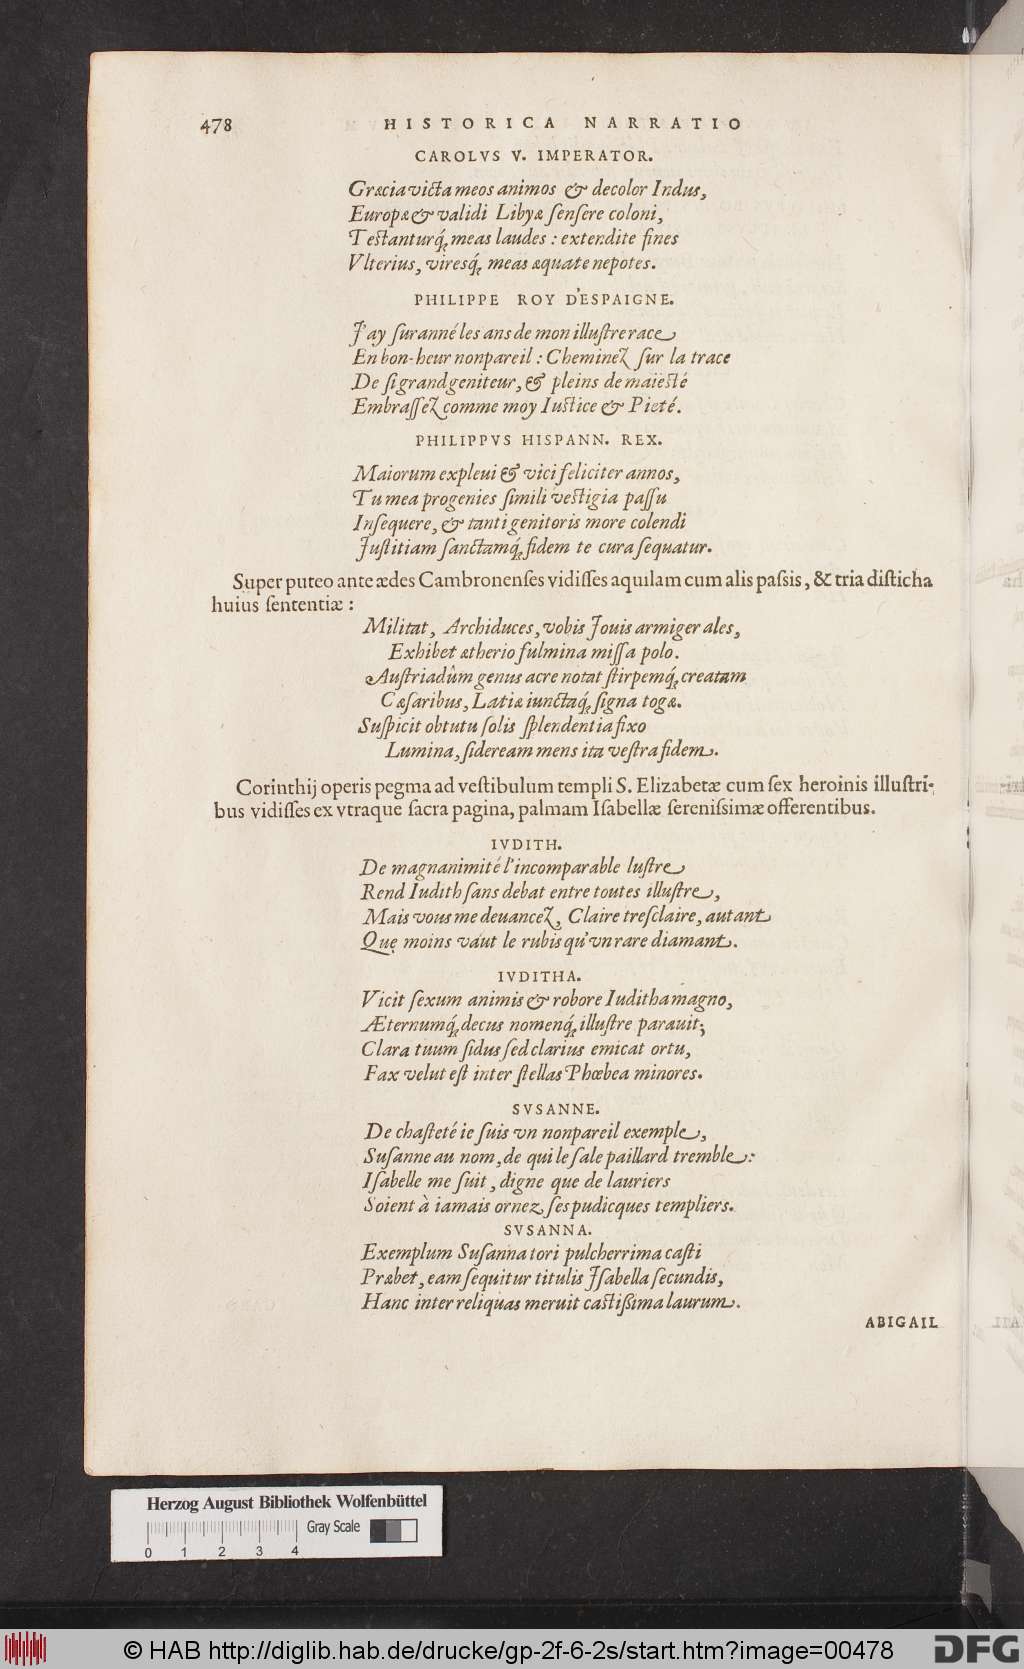 478 HISTORICA NARRATIO
CAROLVS V. IMPERATOR.
Græcia victa meos animos & decolor Indus,
Europæ & validi Libyæ ſenſere coloni,
Teſtanturq́; meas laudes : extendite fines
Vlterius, viresq́; meas æquate nepotes.
PHILIPPE ROY D'ESPAIGNE.
J'ay ſuranné les ans de mon illuſtre race
En bon-heur nonpareil : Cheminez ſur la trace
De ſi grand geniteur, & pleins de maieſté
Embraſſez comme moy Iuſtice & Pieté.
PHILIPPVS HISPANN. REX.
Maiorum expleui & vici feliciter annos,
Tu mea progenies ſimili veſtigia paſſu
Inſequere, & tanti genitoris more colendi
Juſtitiam ſanctamq́; fidem te cura ſequatur.
Super puteo ante ædes Cambronenſes vidiſſes aquilam cum alis paſsis, & tria diſticha
huius ſententiæ :
Militat, Archiduces, vobis Jouis armiger ales,
Exhibet ætherio fulmina miſſa polo.
Auſtriadûm genus acre notat ſtirpemq́; creatam
Cæſaribus, Latiæ iunctaq́; ſigna togæ.
Suſpicit obtutu ſolis ſplendentia fixo
Lumina, ſideream mens ita veſtra fidem.
Corinthij operis pegma ad veſtibulum templi S. Elizabetæ cum ſex heroinis illuſtri-
bus vidiſſes ex vtraque ſacra pagina, palmam Iſabellæ ſereniſsimæ offerentibus.
IVDITH.
De magnanimité l'incomparable luſtre
Rend Iudith ſans debat entre toutes illuſtre,
Mais vous me deuancez, Claire treſclaire, autant
Que moins vaut le rubis qu'vn rare diamant.
IVDITHA.
Vicit ſexum animis & robore Iuditha magno,
Æternumq́; decus nomenq́; illuſtre parauit;
Clara tuum ſidus ſed clarius emicat ortu,
Fax velut eſt inter ſtellas Phœbea minores.
SVSANNE.
De chaſteté ie ſuis vn nonpareil exemple,
Suſanne au nom, de qui le ſale paillard tremble :
Iſabelle me ſuit, digne que de lauriers
Soient à iamais ornez ſes pudicques templiers.
SVSANNA.
Exemplum Suſanna tori pulcherrima caſti
Præbet, eam ſequitur titulis Jſabella ſecundis,
Hanc inter reliquas meruit caſtiſſima laurum.
ABIGAIL
Herzog August Bibliothek Wolfenbüttel
Gray Scale
0 1 2 3 4
© HAB http://diglib.hab.de/drucke/gp-2f-6-2s/start.htm?image=00478
DFG